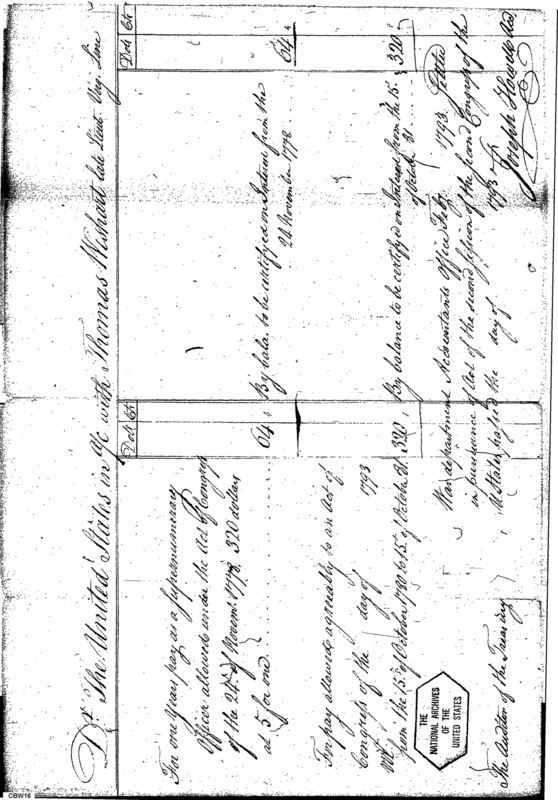 Dr. The United States in a/c with Thomas Wishart late Lieut. Virg. Line
Dols Cts
Dols Cts
For one Years pay as a Supernumerary
Officer allowed under the Act of Congress
of the 24th of Novemr. 1778. 320 dollars
at 5 for one
64
By bala. to be certified on Interest from the
24 November 1778
64
For pay allowed agreeably to an Act of
Congress of the day of 1793
from the 15th of October 1780 to 15th of October 81.
320
By balance to be certified on Interest from the 15.
of October 81
320
War department Accountants Office Feby 1793. Stated
in pursuance of Act of the second Session of the second Congress of the
U States passed the day of 1793
Joseph Howell Acct.
The Auditor of the Treasury
THE
NATIONAL ARCHIVES
OF THE
UNITED STATES
CBW16